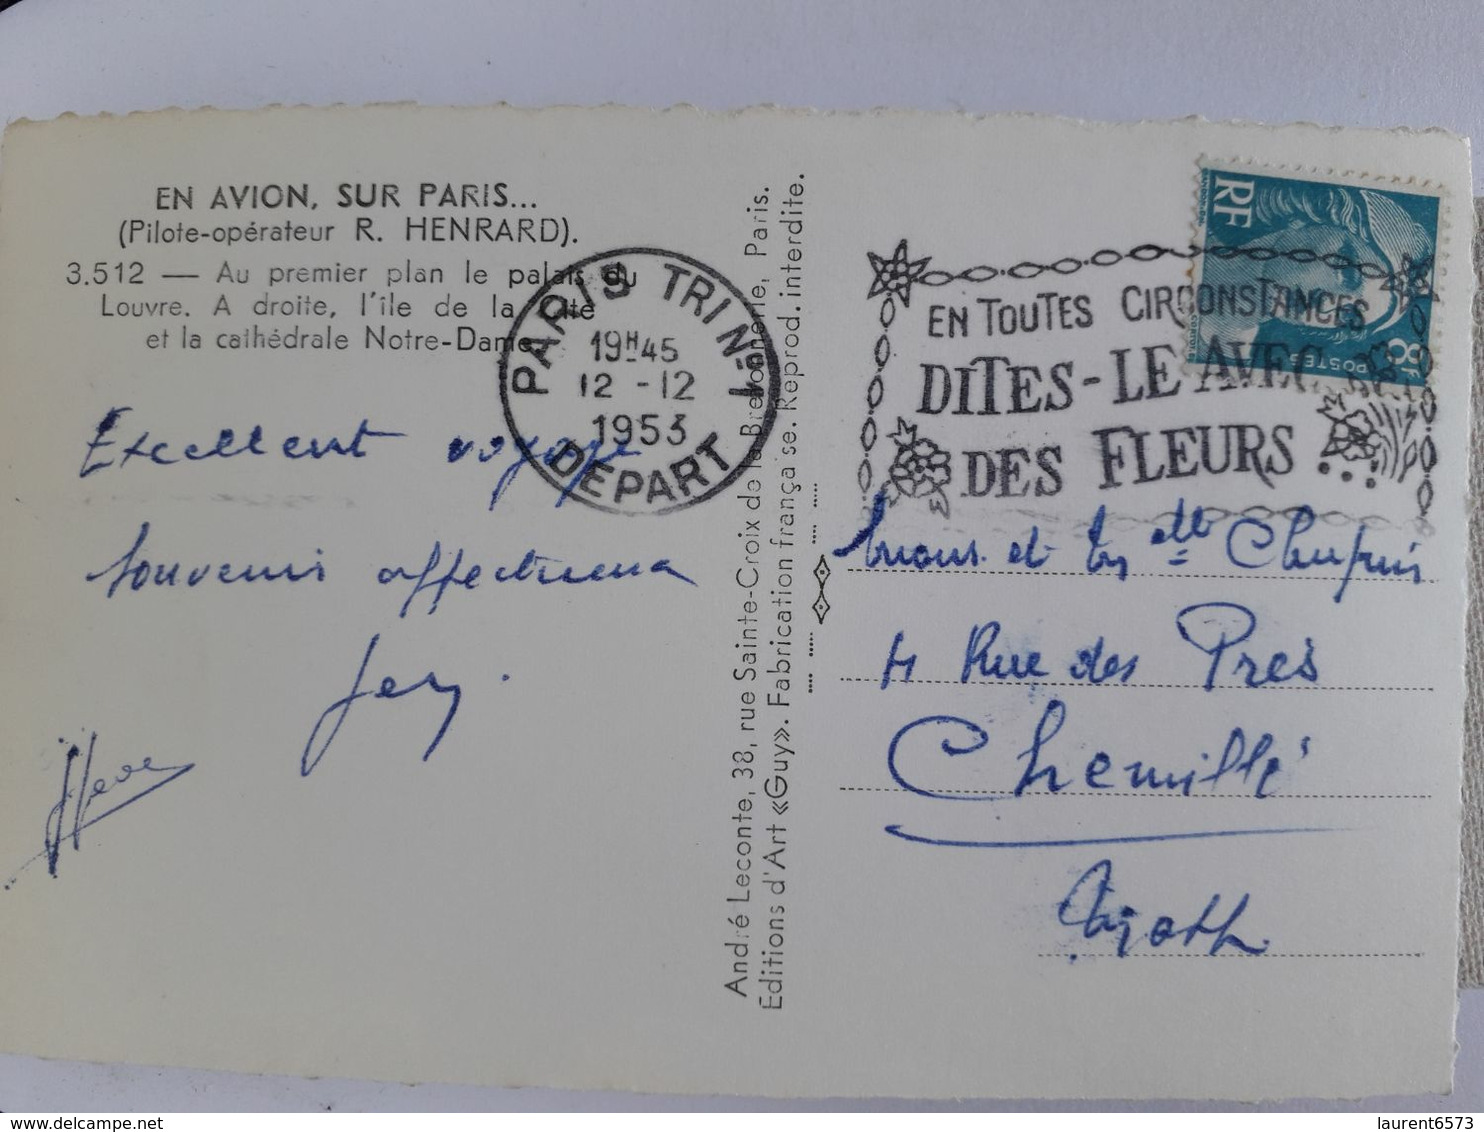 EN AVION, SUR PARIS...
(Pilote-opérateur R. HENRARD).
3.512 — Au premier plan le palais du
Louvre. A droite, l'île de la Cité
et la cathédrale Notre-Dame
PARIS TRI Nº1
19H45
12 - 12
1953
DÉPART
Excellent voyage
Souvenirs affectueux
André Leconte, 38, rue Sainte-Croix de la Bretonnerie, Paris.
Editions d'Art «Guy». Fabrication française. Reprod. interdite.
RF
8F
POSTES
EN TOUTES CIRCONSTANCES
DITES-LE AVEC
DES FLEURS
et
Rue des Prés
Chemillé
laurent6573